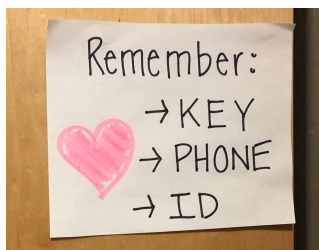 Remember:
→ KEY
→ PHONE
→ ID